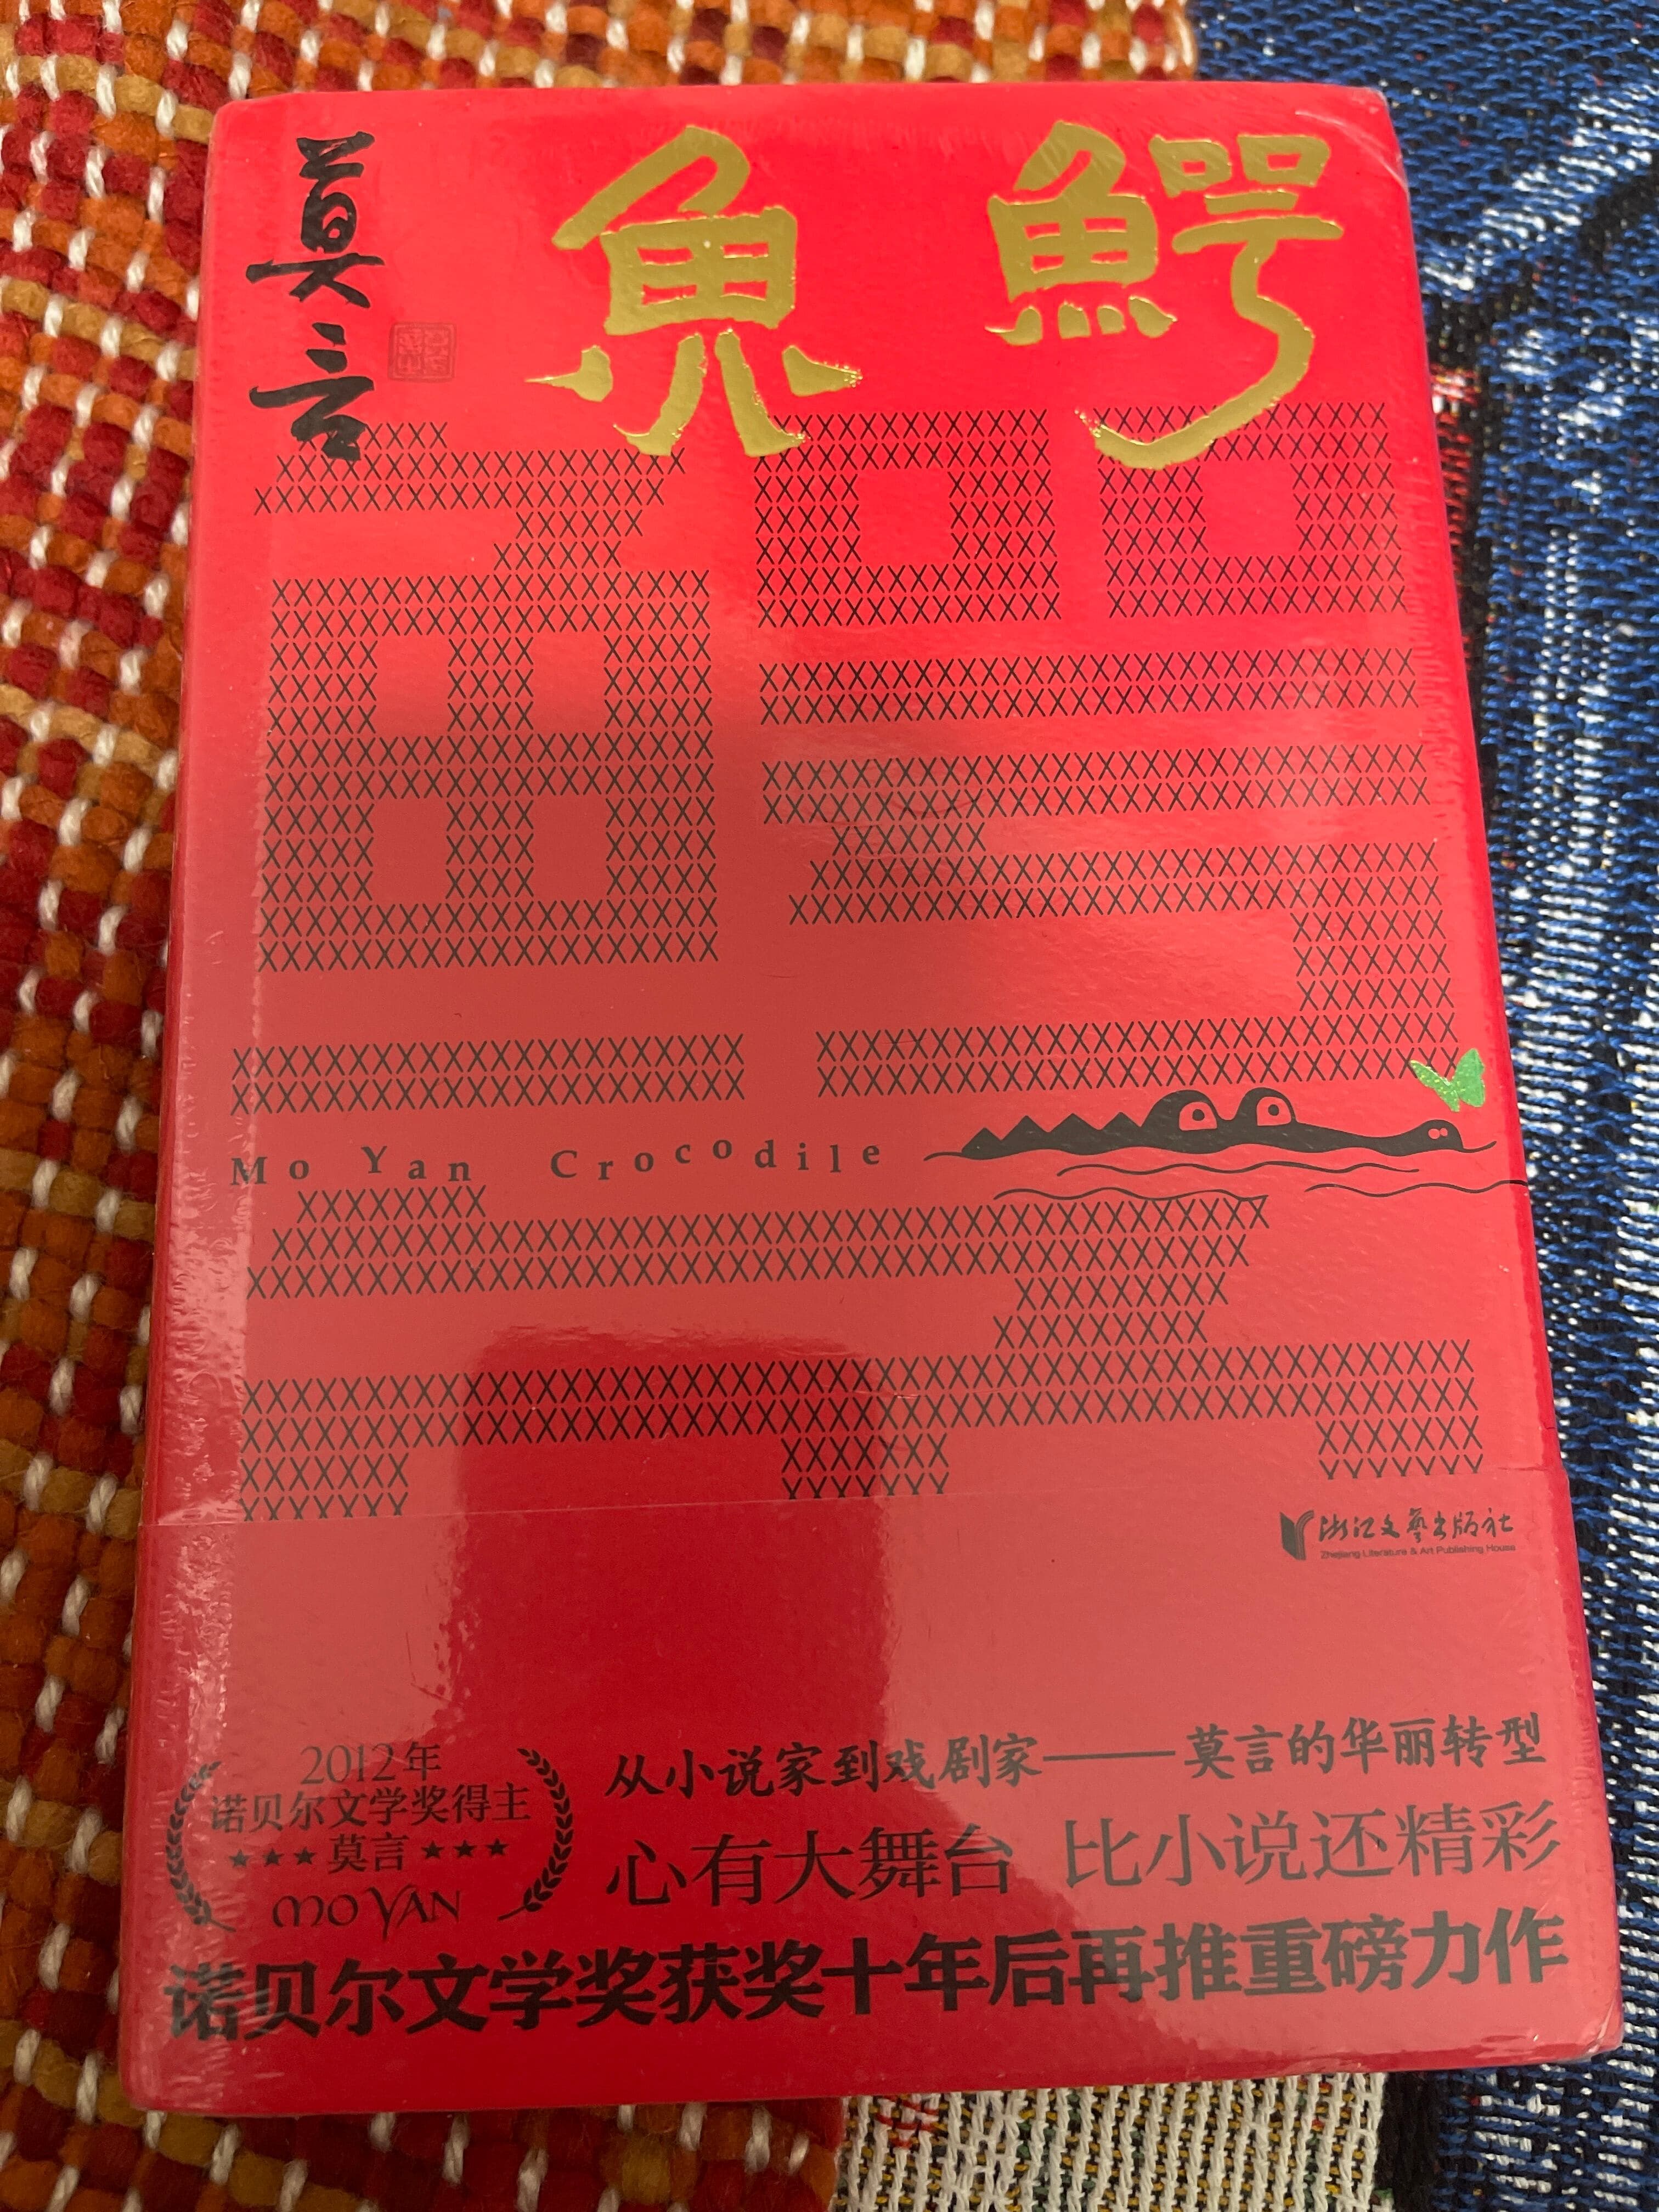 鱷魚
莫言
Mo Yan Crocodile
浙江文艺出版社
Zhejiang Literature & Art Publishing House
2012年
诺贝尔文学奖得主
★★★莫言★★★
MO YAN
从小说家到戏剧家——莫言的华丽转型
心有大舞台 比小说还精彩
诺贝尔文学奖获奖十年后再推重磅力作